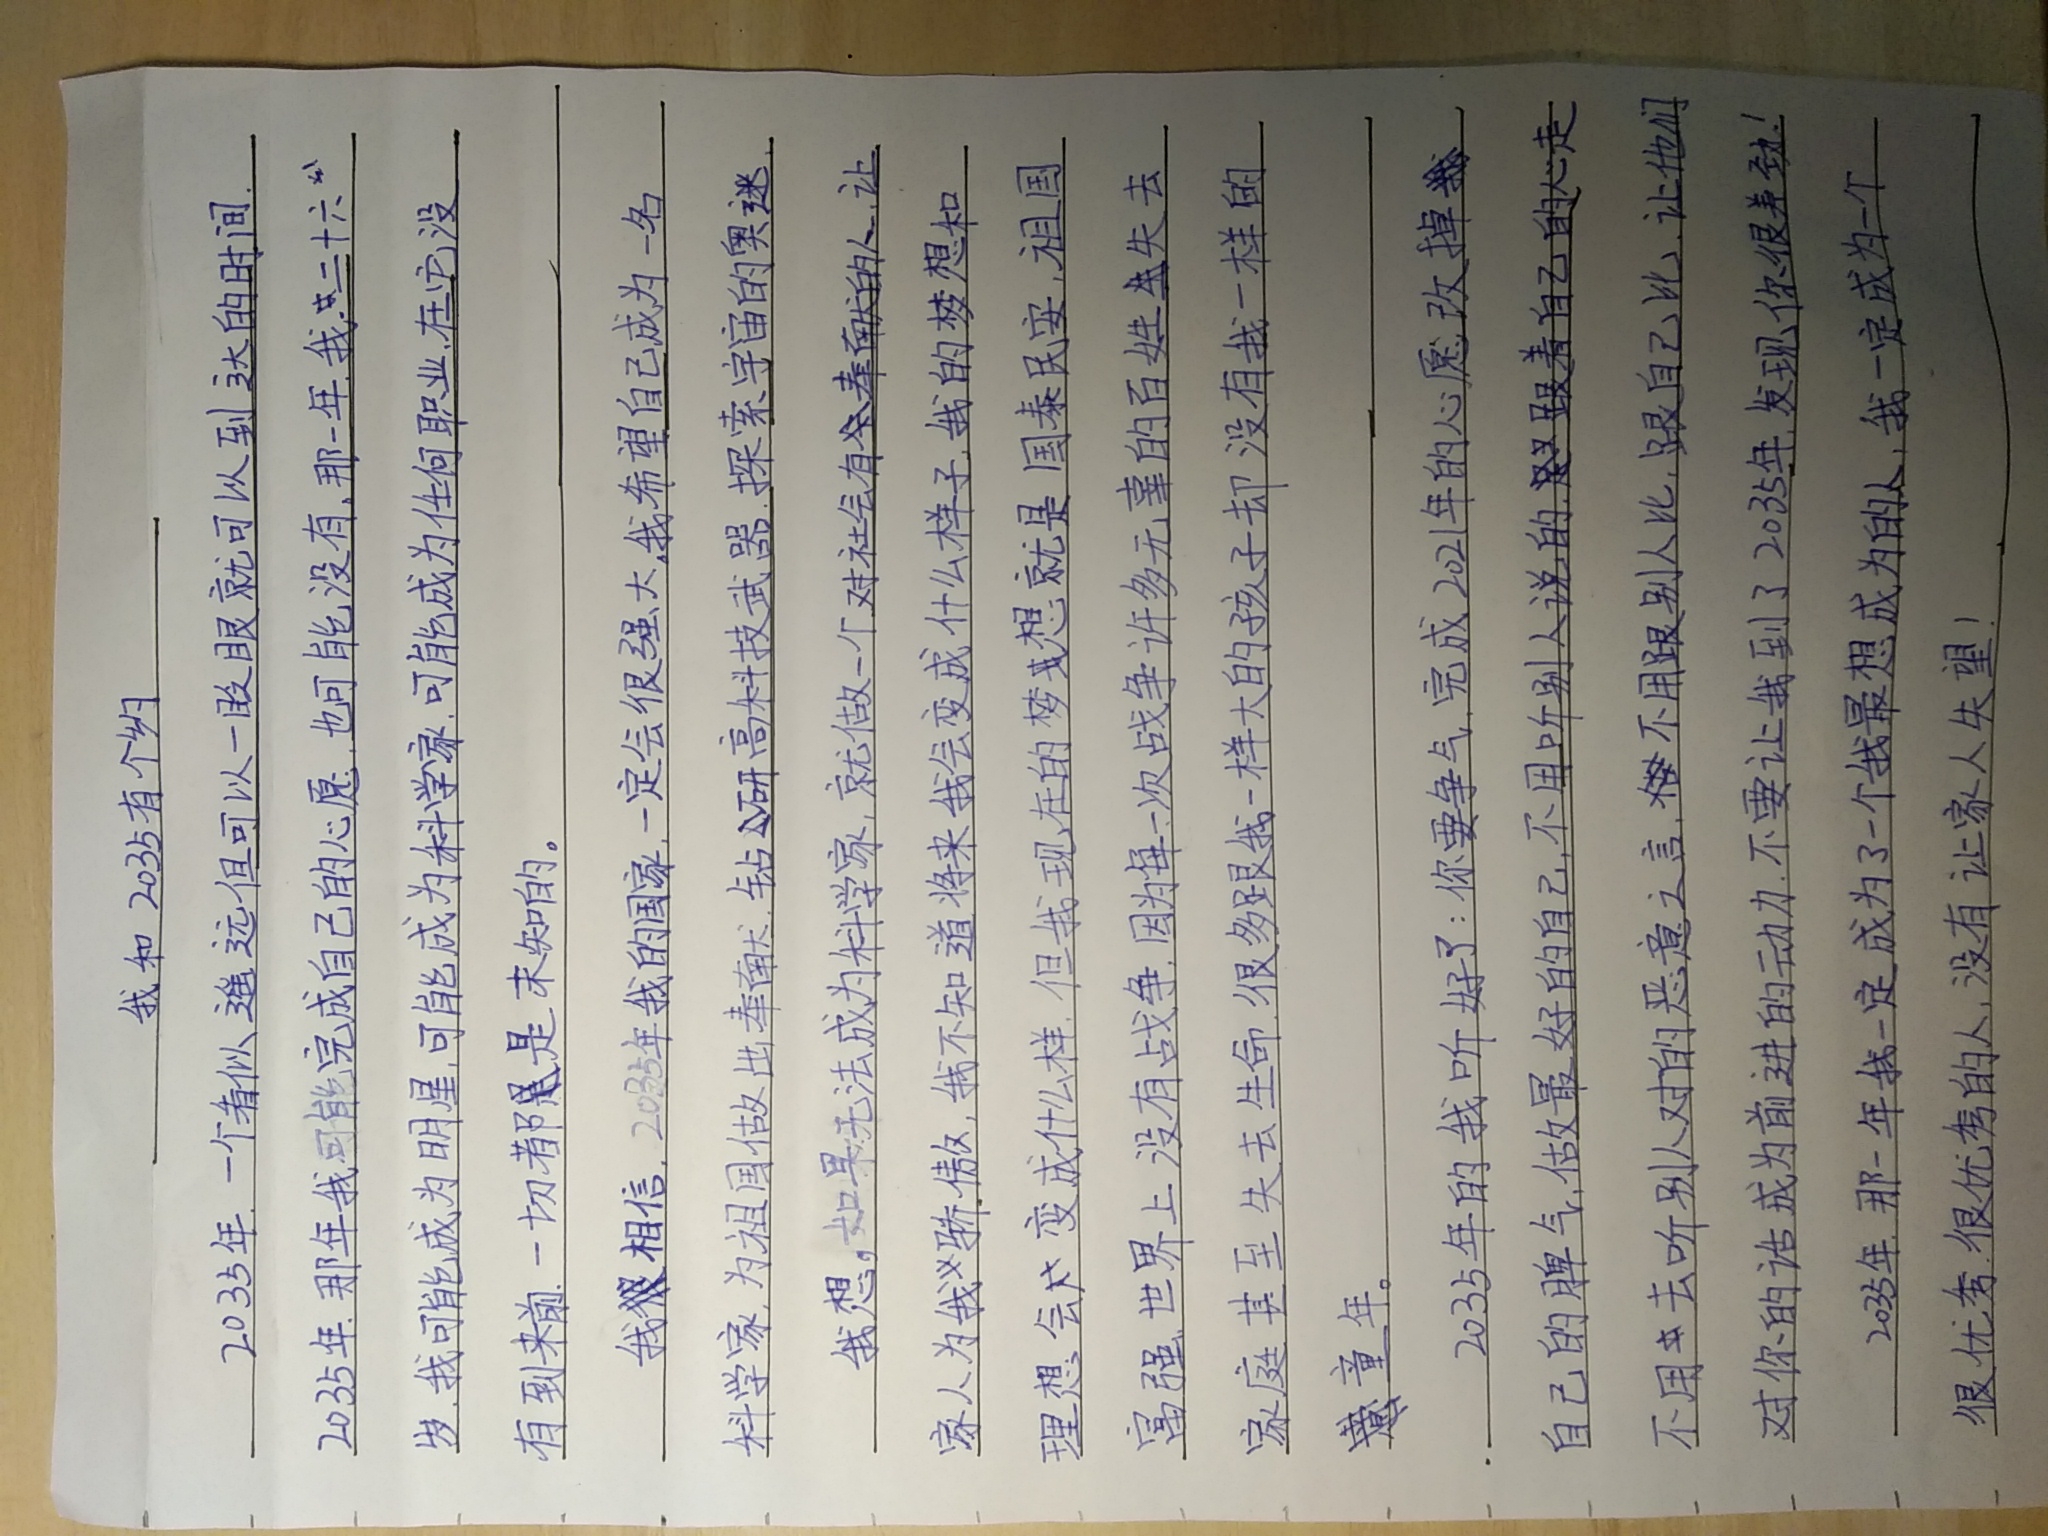 我和2035有个约
2035年.一个看似遥远但可以一眨眼就可以到达的时间.
2035年.那年我可能完成自己的心愿.也可能没有.那一年.我.二十六
岁.我可能成为明星.可能成为科学家.可能成为任何职业.在它没
有到来前.一切都是未知的。
我相信.2035年我的国家.一定会很强大.我希望自己成为一名
科学家.为祖国做出奉献.钻研高科技武器.探索宇宙的奥迷.
我想。如果无法成为科学家.就做一个对社会有奉献的人.让
家人为我骄傲.我不知道将来我会变成什么样子.我的梦想和
理想会变成什么样.但我现在的梦想就是国泰民安.祖国
富强.世界上没有战争.因为每一次战争许多无辜的百姓失去
家庭甚至失去生命.很多跟我一样大的孩子却没有我一样的
童年。
2035年的我听好了:你要争气.完成2021年的心愿.改掉
自己的脾气.做最好的自己.不用听别人说的.跟着自己的心走
不用去听别人对的恶意之言.不用跟别人比.跟自己比.让他们
对你的话成为前进的动力.不要让我到了2035年.发现你很差劲!
2035年.那一年我一定成为了一个我最想成为的人.我一定成为一个
很优秀.很优秀的人.没有让家人失望!